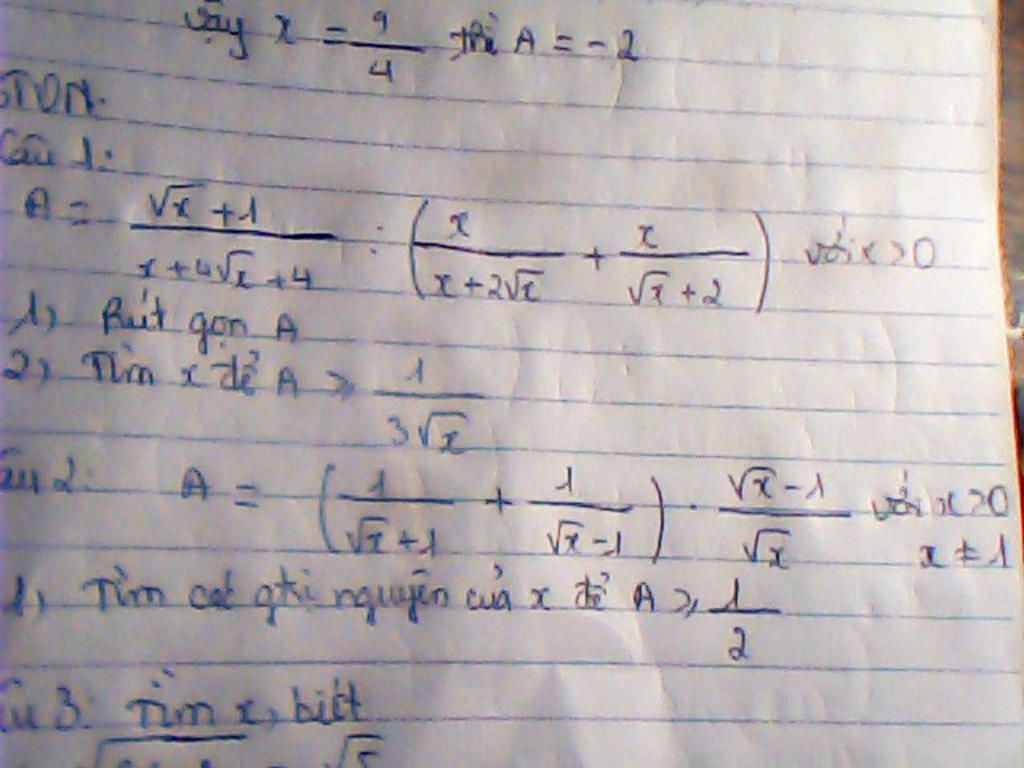 Vậy x = 9/4 thì A = -2
BTVN:
Câu 1:
A = (√x + 1)/(x + 4√x + 4) : (x/(x + 2√x) + x/(√x + 2)) với x > 0
1, Rút gọn A
2, Tìm x để A ≥ 1/(3√x)
Câu 2: A = (1/(√x + 1) + 1/(√x - 1)) . (√x - 1)/√x với x > 0
x ≠ 1
1, Tìm các gtri nguyên của x để A ≥ 1/2
Câu 3: Tìm x, biết